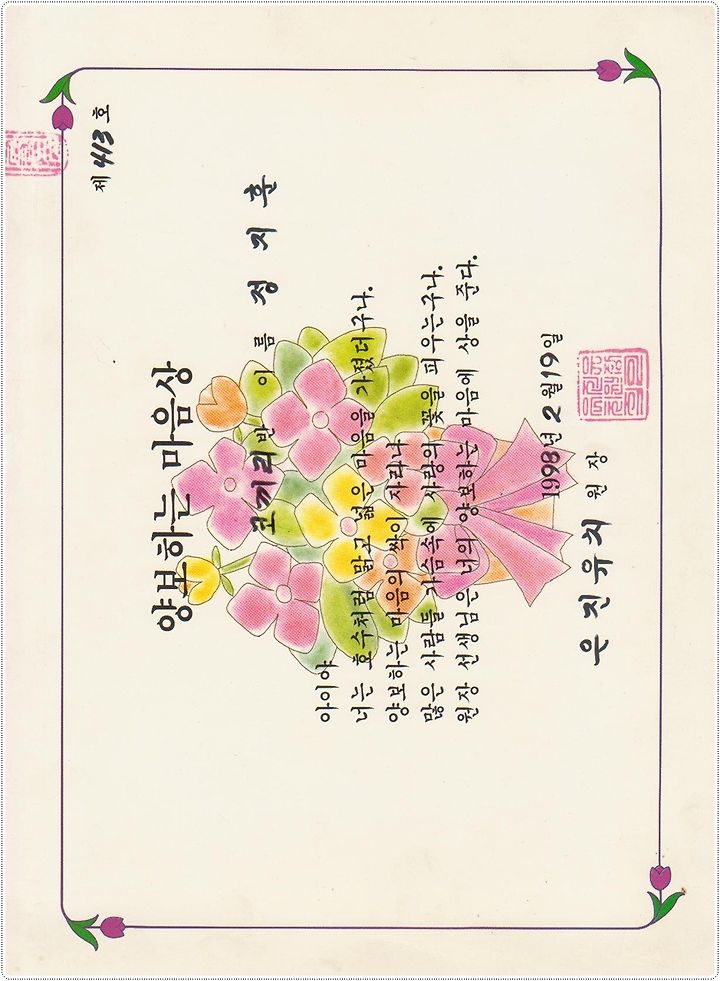 제 413 호
양보하는 마음상
코끼리 반 이 름 정 지 훈
아이야
너는 호수처럼 맑고 넓은 마음을 가졌더구나.
양보하는 마음의 싹이 자라나
많은 사람들 가슴속에 사랑의 꽃을 피우는구나.
원장 선생님은 너의 양보하는 마음에 상을 준다.
1998년 2월 19일
우 진 유 치 원 장